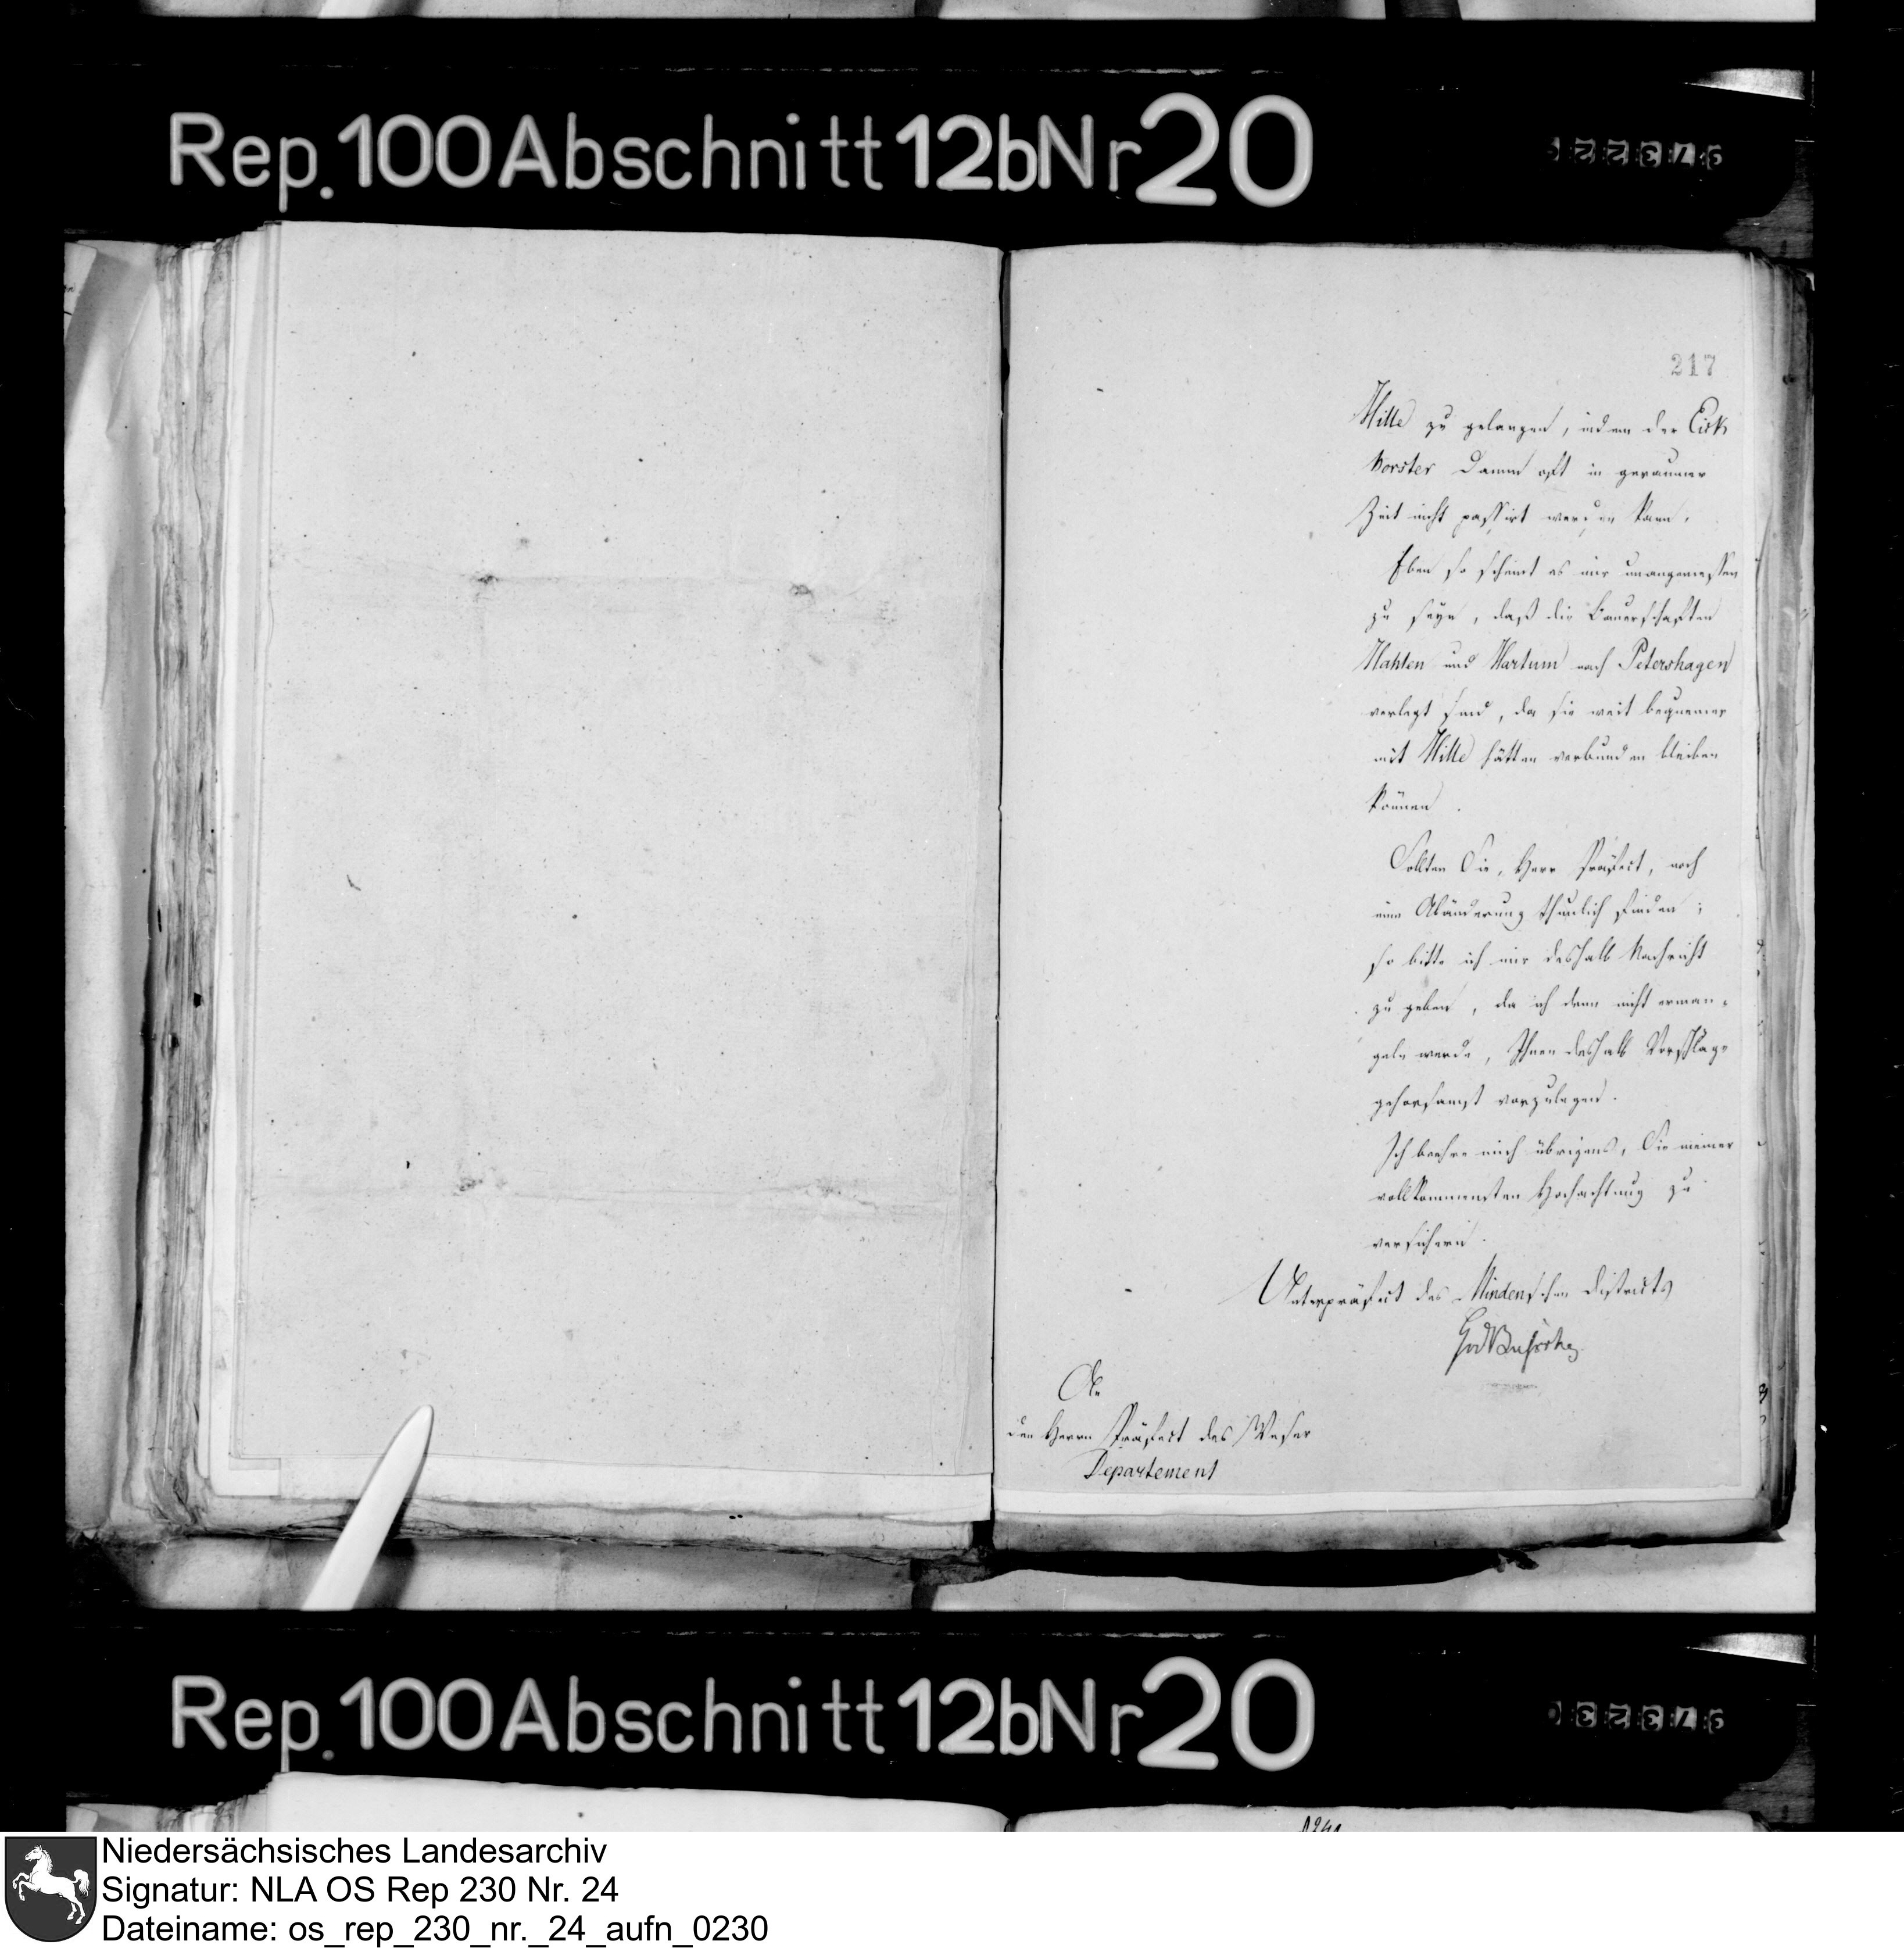 Rep. 100 Abschnitt 12b Nr 20
217
Hille zu gelangen, indem der Eick
horster Damm oft in geraumer
Zeit nicht passirt werden kann.
Eben so scheint es mir unangemessen
zu seyn, daß die Bauerschaften
Hahlen und Hartum nach Petershagen
verlegt sind, da sie weit bequemer
mit Hille hätten verbunden bleiben
können.
Sollten Sie, Herr Präfect, noch
eine Abänderung thunlich finden;
so bitte ich mir deshalb Nachricht
zu geben, da ich denn nicht erman-
geln werde, Ihnen deshalb Vorschläge
gehorsamst vorzulegen.
Ich beehre mich übrigens, Sie meiner
vollkommensten Hochachtung zu
versichern.
Unterpräfect des Mindenschen Districts
An
den Herrn Präfect des Weser
Departement
Rep. 100 Abschnitt 12b Nr 20
Niedersächsisches Landesarchiv
Signatur: NLA OS Rep 230 Nr. 24
Dateiname: os_rep_230_nr._24_aufn_0230